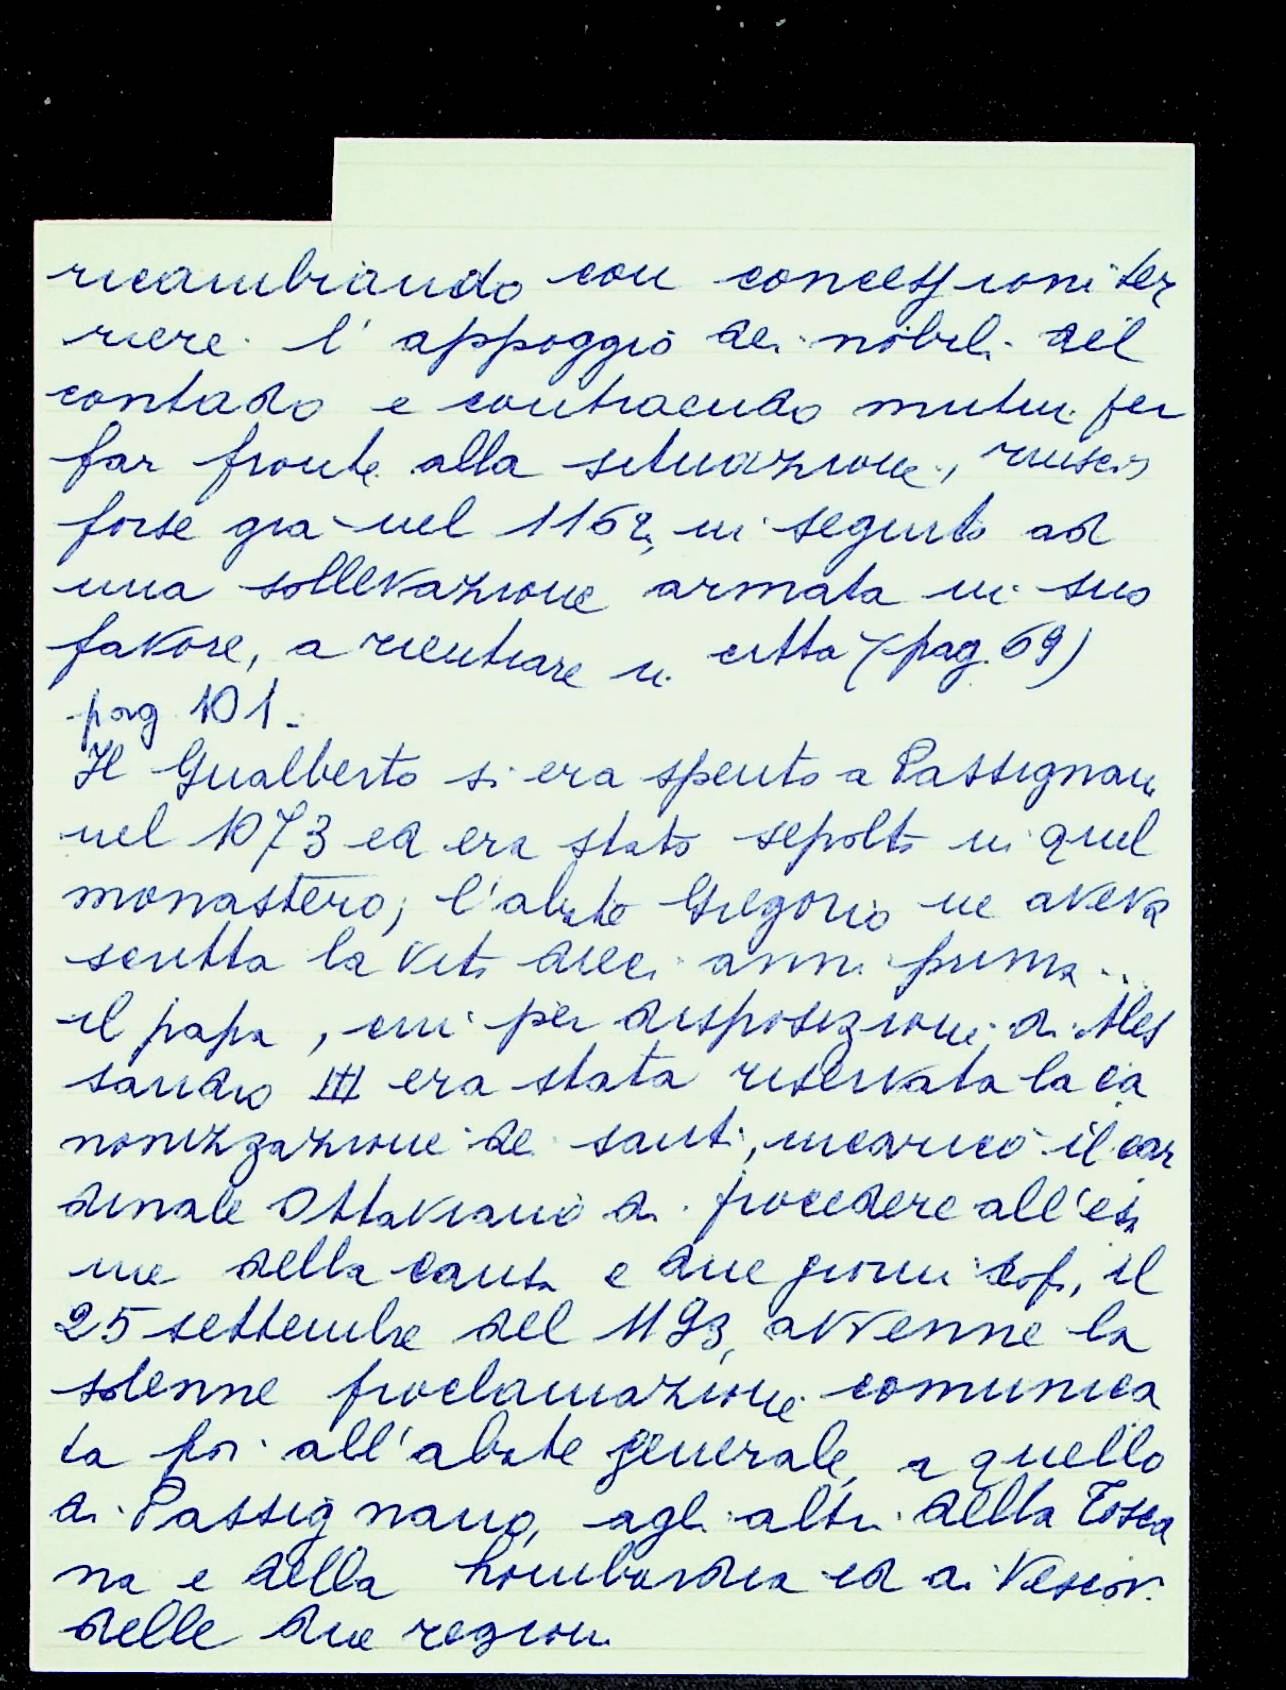 ricambiando con concessioni ter
riere l'appoggio dei nobili del
contado e contraendo mutui per
far fronte alla situazione, riuscì
forse già nel 1162, in seguito ad
una sollevazione armata in suo
favore, a rientrare in città (pag. 69)
pag 101.
Il Gualberto si era spento a Passignano
nel 1073 ed era stato sepolto in quel
monastero; l'abate Gregorio ne aveva
scritta la vita dieci anni prima...
il papa, cui per disposizione di Ales
sandro III era stata riservata la ca
nonizzazione dei santi, incaricò il car
dinale Ottaviano di procedere all'esa
me della causa e due giorni dopo, il
25 settembre del 1193, avvenne la
solenne proclamazione comunica
ta poi all'abate generale, a quello
di Passignano, agli altri della Tosca
na e della Lombardia ed ai Vescovi
delle due regioni